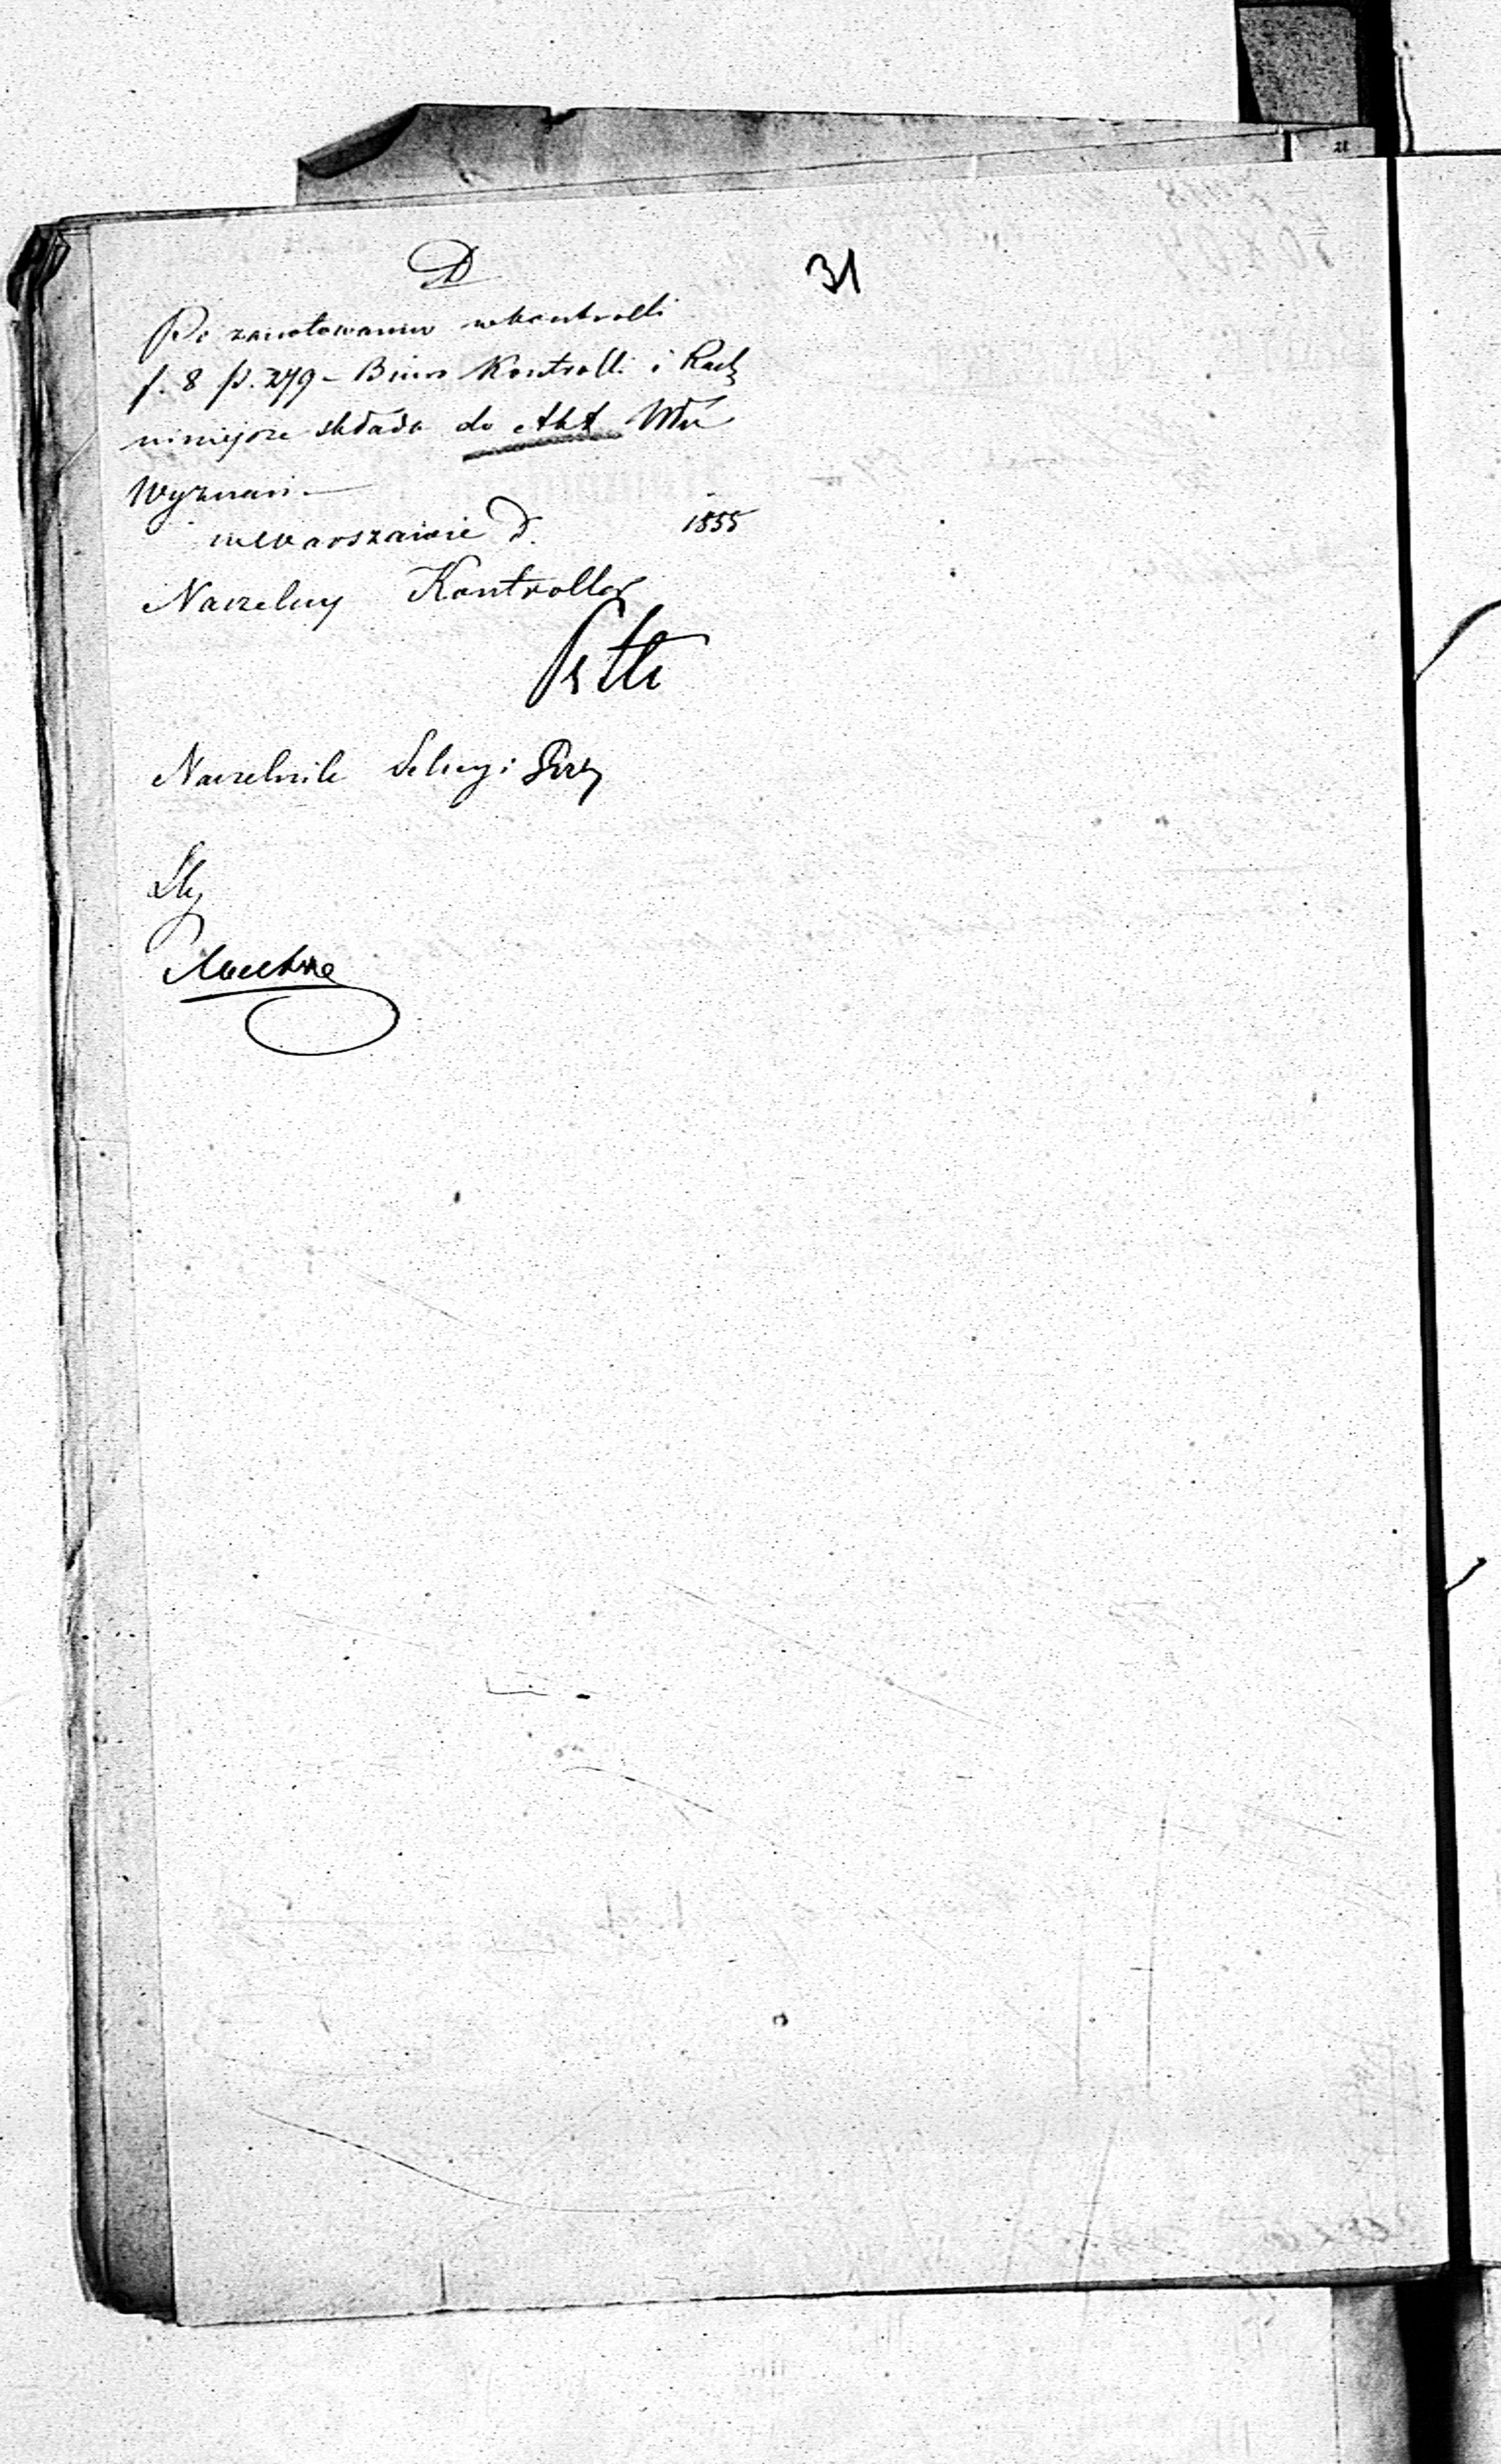 D
31
Po zanotowaniu w kontrolli
f. 8 p. 279 - Biuro Kontrolli i Rach
niniejsze składa do Akt
Wyznań. —
w Warszawie d. 1855
Naczelny Kontroller
Naczelnik Sekcyi